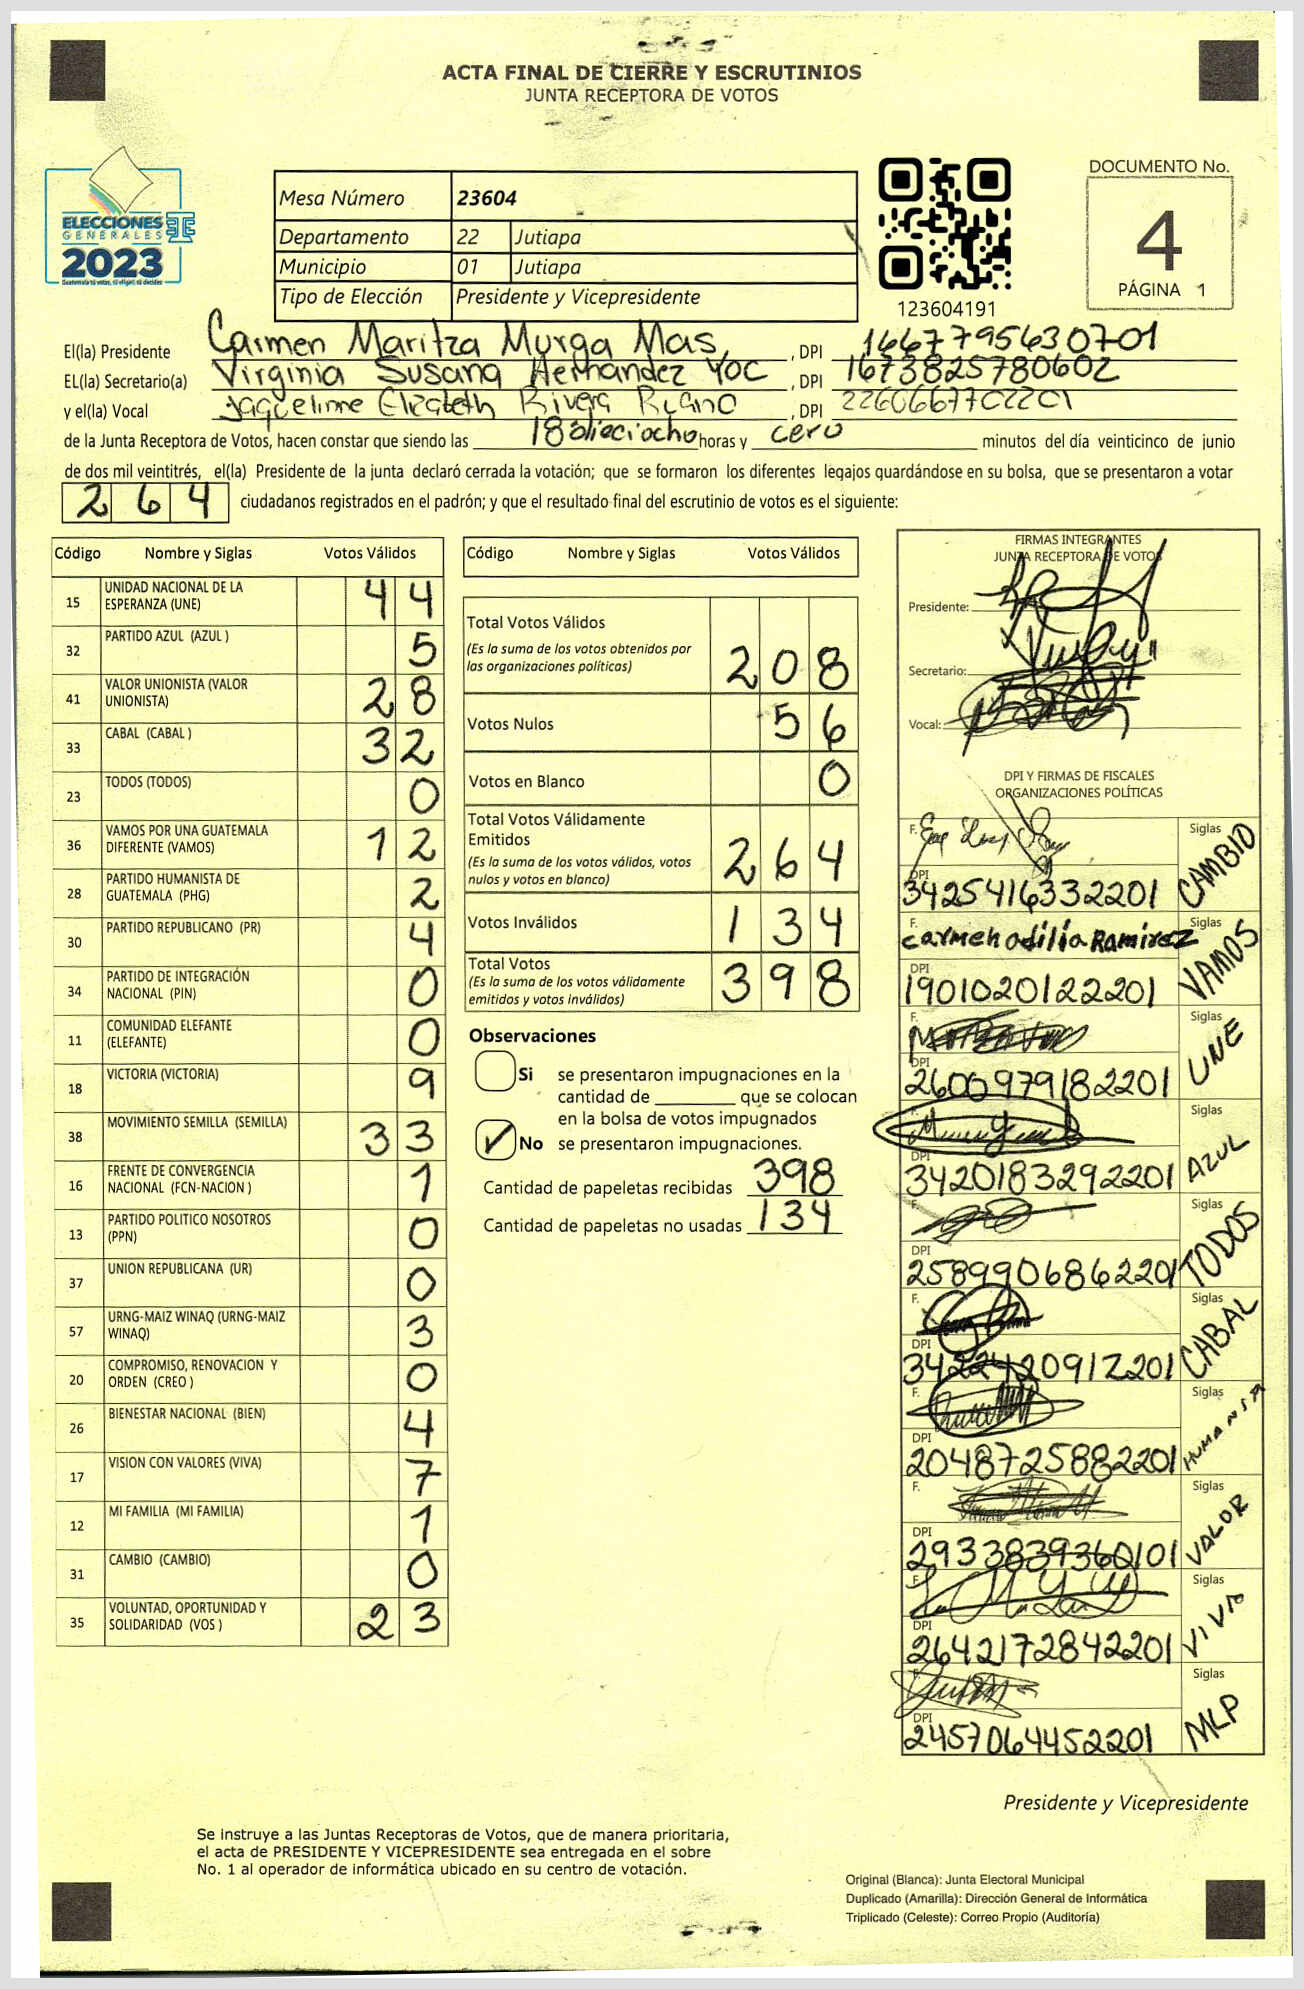 ACTA FINAL DE CIERRE Y ESCRUTINIOS
JUNTA RECEPTORA DE VOTOS
ELECCIONES
GENERALES
2023
Guatemala tú votas, tú eliges, tú decides
Mesa Número 23604
Departamento 22 Jutiapa
Municipio 01 Jutiapa
Tipo de Elección Presidente y Vicepresidente
123604191
DOCUMENTO No.
4
PÁGINA 1
El(la) Presidente Carmen Maritza Murga Mas, DPI 1667795630701
EL(la) Secretario(a) Virginia Susana Hernandez Yoc, DPI 1673825780602
y el(la) Vocal Jaqueline Elizabeth Rivera Ruano, DPI 2260667702201
de la Junta Receptora de Votos, hacen constar que siendo las 18 dieciocho horas y cero minutos del día veinticinco de junio
de dos mil veintitrés, el(la) Presidente de la junta declaró cerrada la votación; que se formaron los diferentes legajos guardándose en su bolsa, que se presentaron a votar
264 ciudadanos registrados en el padrón; y que el resultado final del escrutinio de votos es el siguiente:
Código Nombre y Siglas Votos Válidos
15 UNIDAD NACIONAL DE LA ESPERANZA (UNE) 44
32 PARTIDO AZUL (AZUL ) 5
41 VALOR UNIONISTA (VALOR UNIONISTA) 28
33 CABAL (CABAL ) 32
23 TODOS (TODOS) 0
36 VAMOS POR UNA GUATEMALA DIFERENTE (VAMOS) 12
28 PARTIDO HUMANISTA DE GUATEMALA (PHG) 2
30 PARTIDO REPUBLICANO (PR) 4
34 PARTIDO DE INTEGRACIÓN NACIONAL (PIN) 0
11 COMUNIDAD ELEFANTE (ELEFANTE) 0
18 VICTORIA (VICTORIA) 9
38 MOVIMIENTO SEMILLA (SEMILLA) 33
16 FRENTE DE CONVERGENCIA NACIONAL (FCN-NACION ) 1
13 PARTIDO POLITICO NOSOTROS (PPN) 0
37 UNION REPUBLICANA (UR) 0
57 URNG-MAIZ WINAQ (URNG-MAIZ WINAQ) 3
20 COMPROMISO, RENOVACION Y ORDEN (CREO ) 0
26 BIENESTAR NACIONAL (BIEN) 4
17 VISION CON VALORES (VIVA) 7
12 MI FAMILIA (MI FAMILIA) 1
31 CAMBIO (CAMBIO) 0
35 VOLUNTAD, OPORTUNIDAD Y SOLIDARIDAD (VOS ) 23
Código Nombre y Siglas Votos Válidos
Total Votos Válidos
(Es la suma de los votos obtenidos por
las organizaciones políticas) 208
Votos Nulos 56
Votos en Blanco 0
Total Votos Válidamente
Emitidos
(Es la suma de los votos válidos, votos
nulos y votos en blanco) 264
Votos Inválidos 134
Total Votos
(Es la suma de los votos válidamente
emitidos y votos inválidos) 398
Observaciones
Si se presentaron impugnaciones en la
cantidad de ________ que se colocan
en la bolsa de votos impugnados
✓ No se presentaron impugnaciones.
Cantidad de papeletas recibidas 398
Cantidad de papeletas no usadas 134
FIRMAS INTEGRANTES
JUNTA RECEPTORA DE VOTOS
Presidente:
Secretario:
Vocal:
DPI Y FIRMAS DE FISCALES
ORGANIZACIONES POLÍTICAS
F. Siglas CAMBIO
DPI 3425416332201
F. Carmen Odilia Ramirez Siglas VAMOS
DPI 1901020122201
F. Siglas UNE
DPI 2600979182201
F. Siglas AZUL
DPI 3420183292201
F. Siglas TODOS
DPI 2589906862201
F. Siglas CABAL
DPI 3422420912201
F. Siglas HUMANSTA
DPI 2048725882201
F. Siglas VALOR
DPI 2933839360101
F. Siglas VIVA
DPI 2642172842201
F. Siglas MLP
DPI 2457064452201
Presidente y Vicepresidente
Se instruye a las Juntas Receptoras de Votos, que de manera prioritaria,
el acta de PRESIDENTE Y VICEPRESIDENTE sea entregada en el sobre
No. 1 al operador de informática ubicado en su centro de votación.
Original (Blanca): Junta Electoral Municipal
Duplicado (Amarilla): Dirección General de Informática
Triplicado (Celeste): Correo Propio (Auditoría)